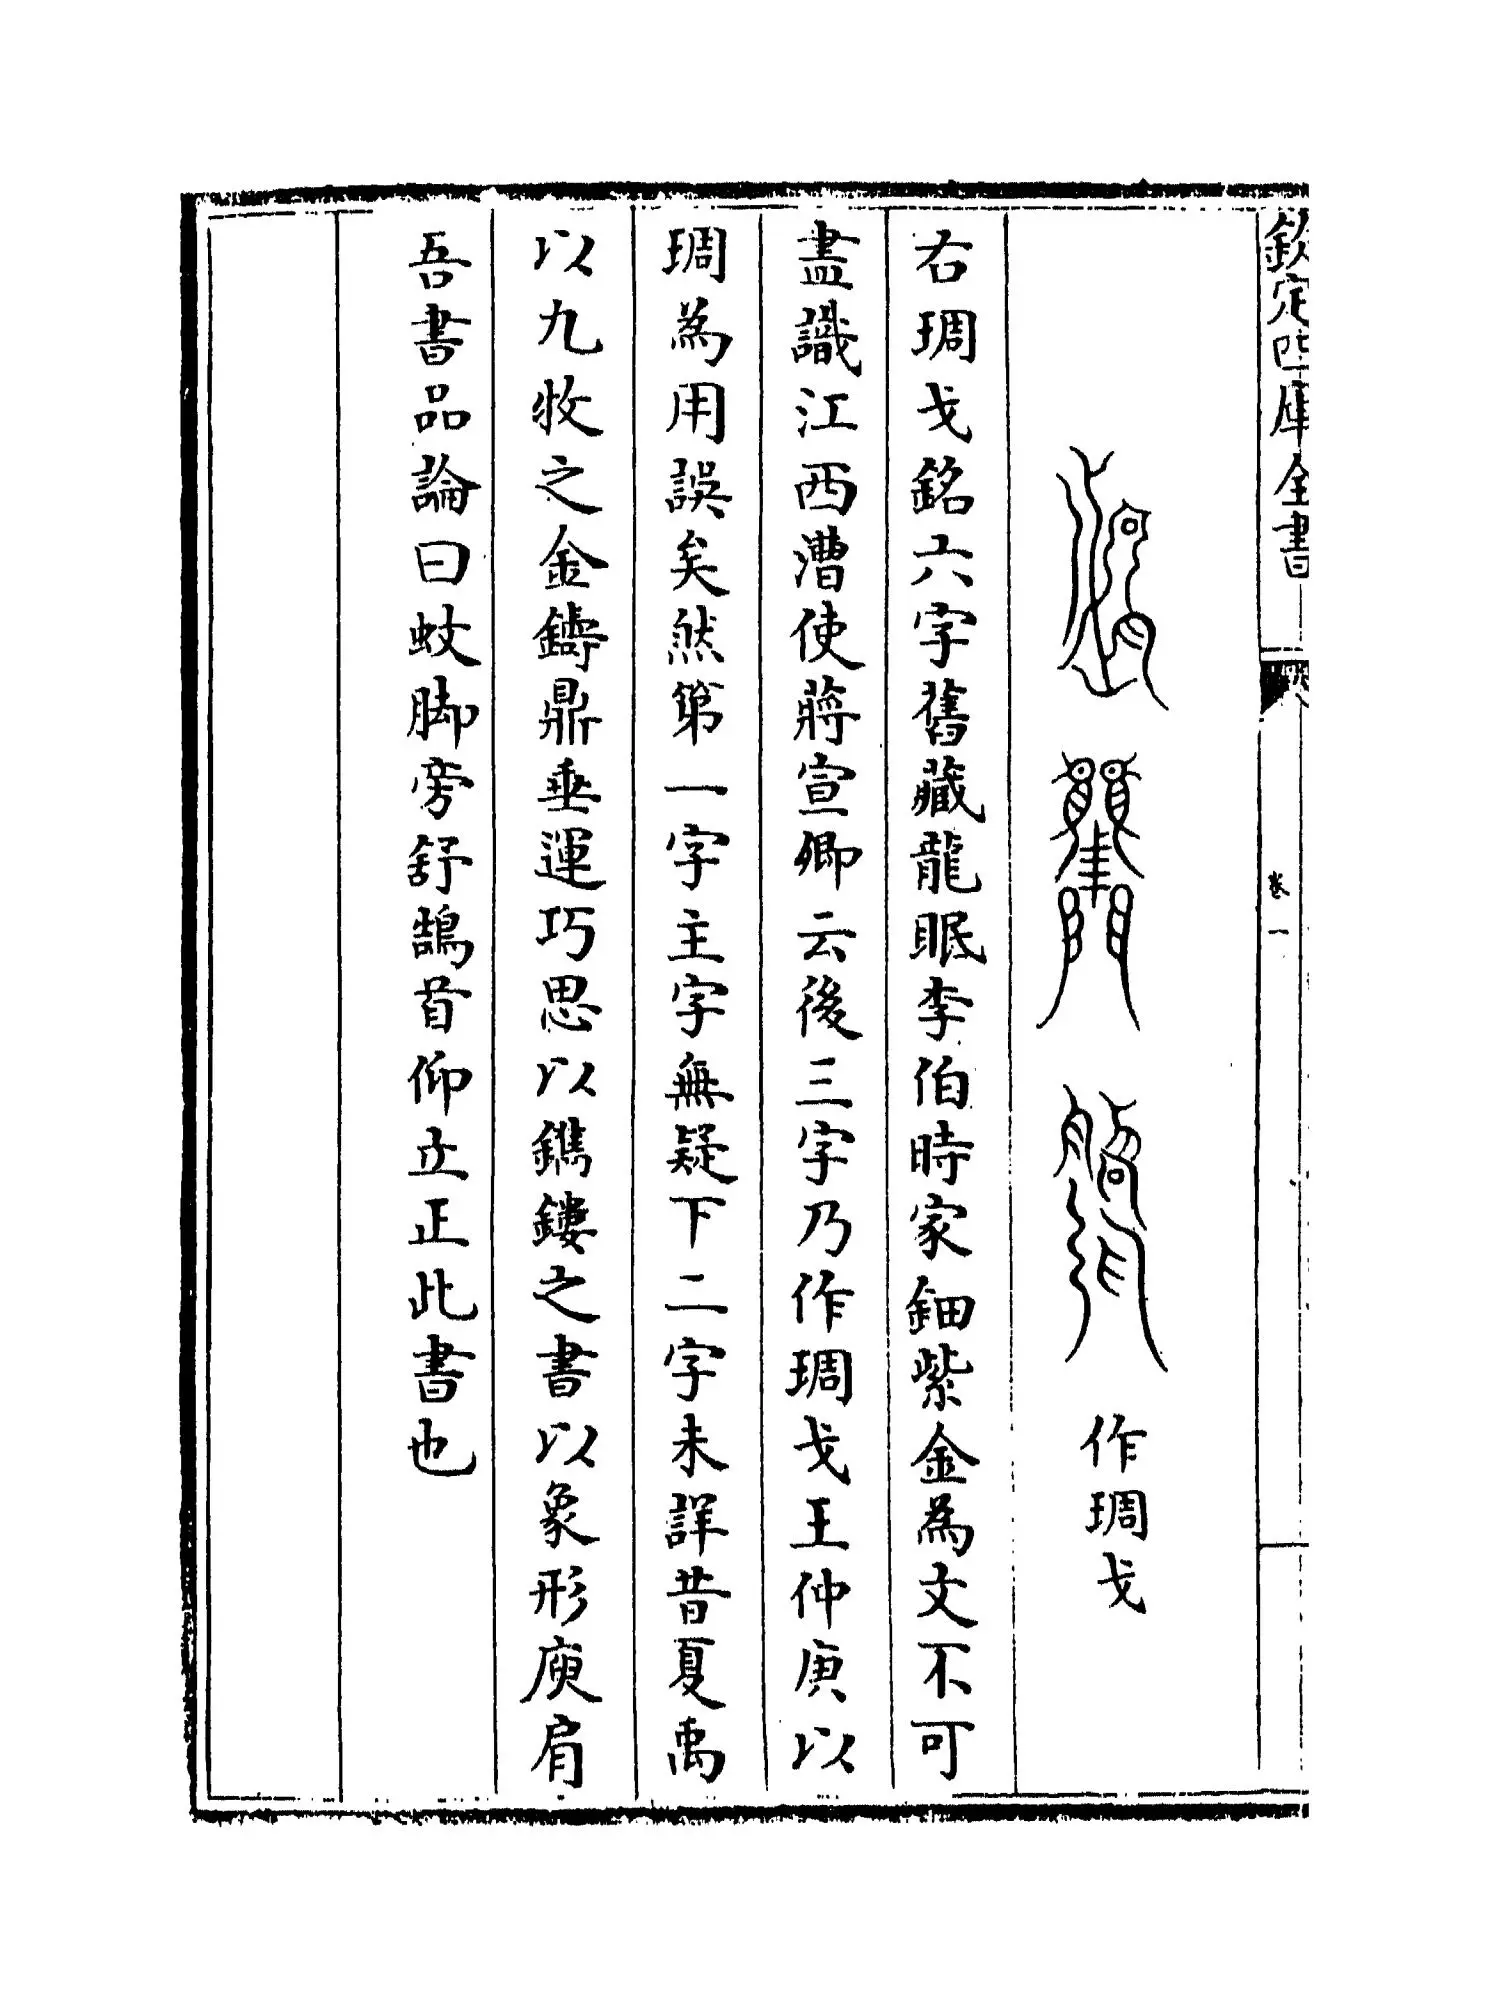 欽定四庫全書
卷一
作琱戈
右琱戈銘六字舊藏龍眠李伯時家鈿紫金為文不可
盡識江西漕使蔣宣卿云後三字乃作琱戈王仲庚以
琱為用誤矣然第一字主字無疑下二字未詳昔夏禹
以九牧之金鑄鼎垂運巧思以鐫鏤之書以象形庾肩
吾書品論曰蚊脚旁舒鵠首仰立正此書也